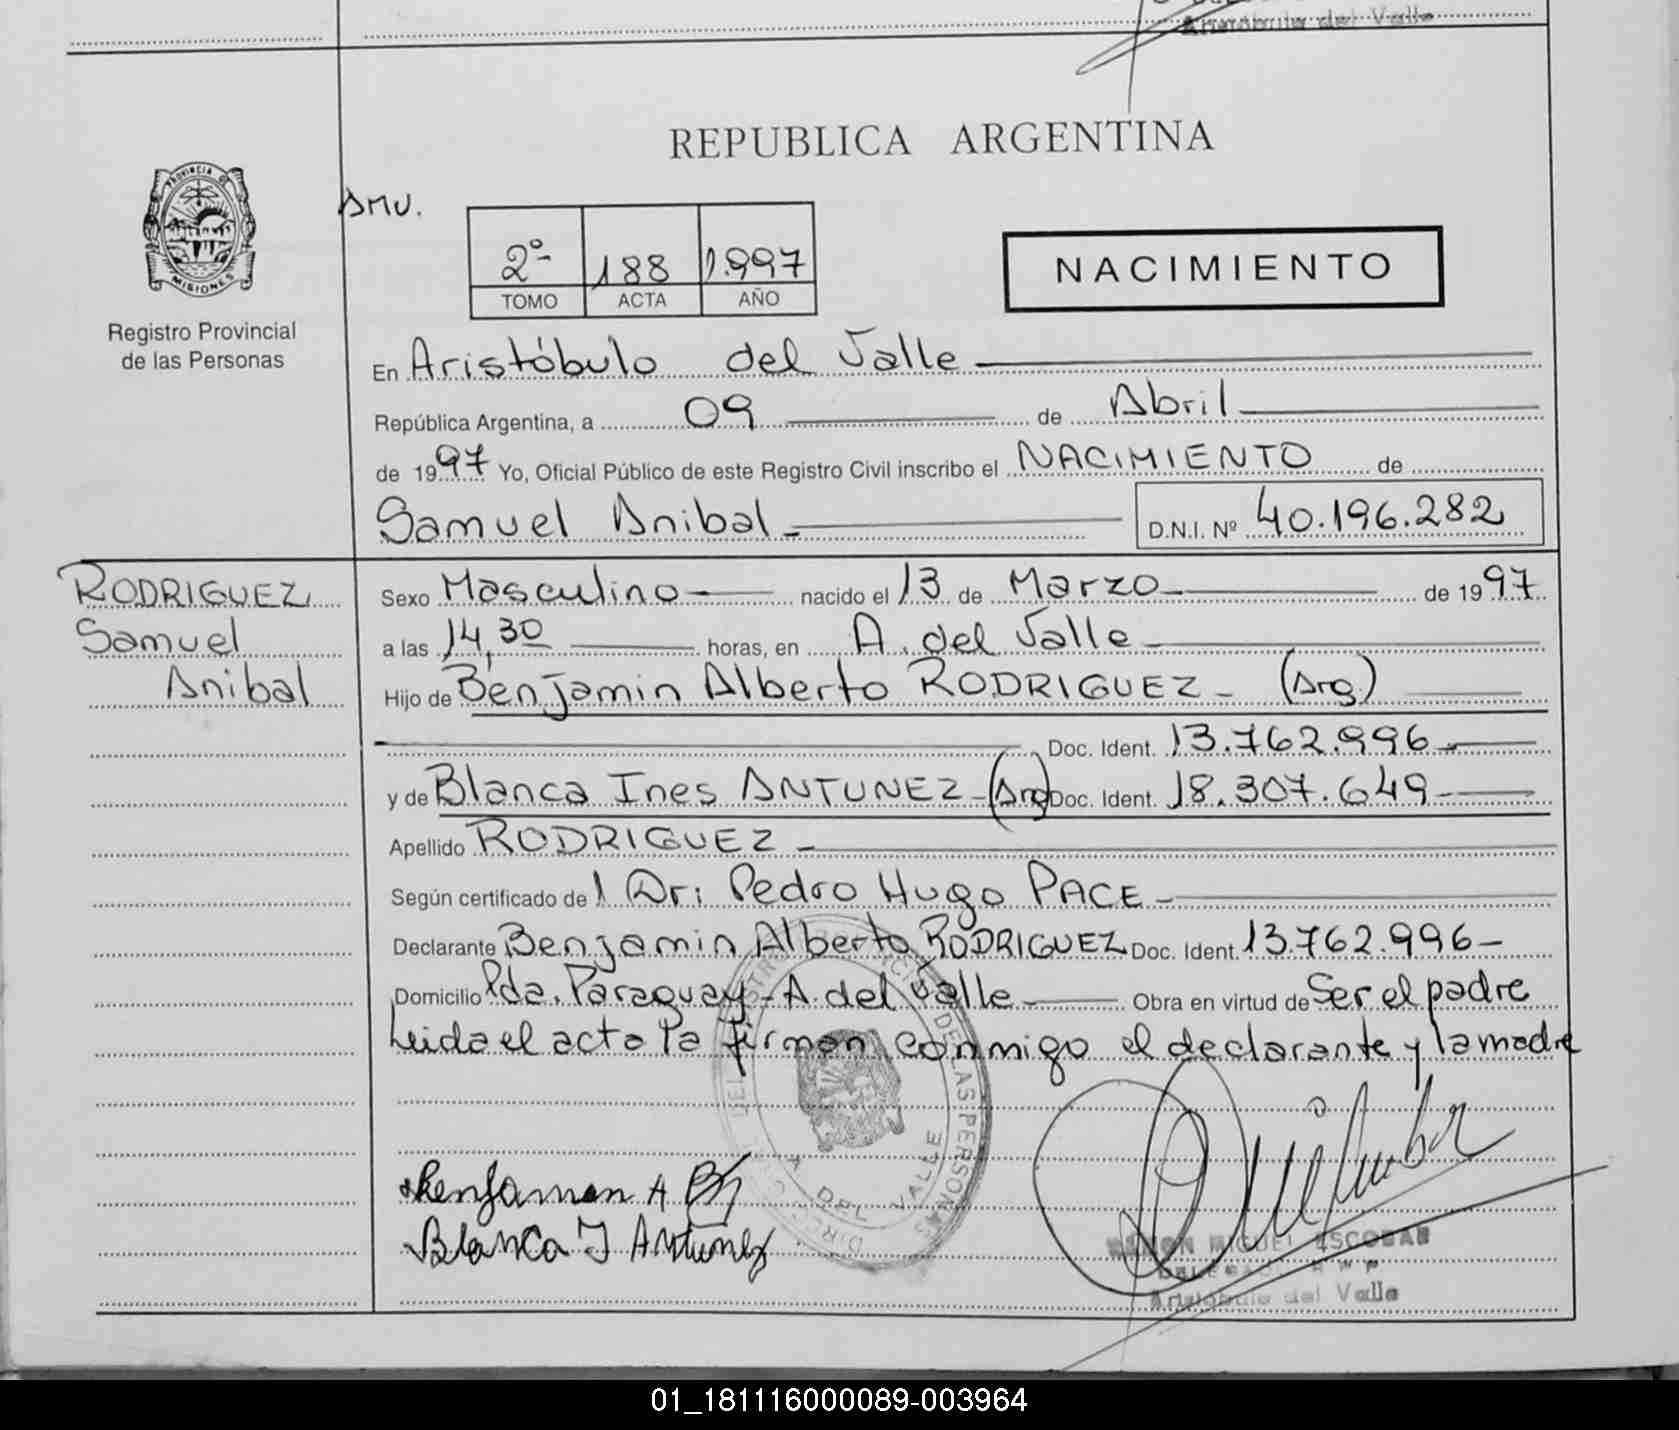 Aristóbulo del Valle
REPUBLICA ARGENTINA
PROVINCIA DE
MISIONES
Registro Provincial
de las Personas
AMV.
2º 188 1.997
TOMO ACTA AÑO
NACIMIENTO
En Aristóbulo del Valle
República Argentina, a 09 de Abril
de 1997 Yo, Oficial Público de este Registro Civil inscribo el NACIMIENTO de
Samuel Anibal D.N.I. Nº 40.196.282
RODRIGUEZ
Samuel
Anibal
Sexo Masculino nacido el 13 de Marzo de 1997
a las 14,30 horas, en A. del Valle
Hijo de Benjamin Alberto RODRIGUEZ - (Arg.)
Doc. Ident. 13.762.996
y de Blanca Ines ANTUNEZ - (Arg) Doc. Ident. 18.307.649
Apellido RODRIGUEZ
Según certificado de l Dr: Pedro Hugo PACE
Declarante Benjamin Alberto RODRIGUEZ Doc. Ident. 13.762.996
Domicilio Pda. Paraguay - A. del Valle Obra en virtud de Ser el padre
Leida el acta la firman conmigo el declarante y la madre
DE LAS PERSONAS
DEL VALLE
Benjamen A
Blanca I Antunez
RAMON MIGUEL ESCOBAR
Aristóbulo del Valle
01_181116000089-003964